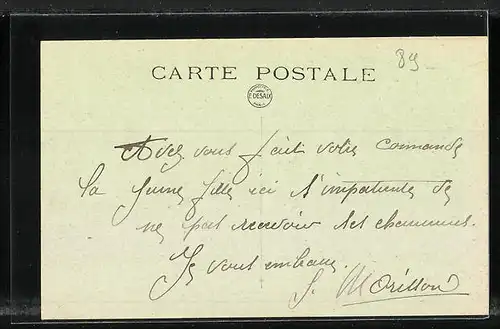 89
CARTE POSTALE
DESAIX
Avez vous fait votre commande
la jeune fille ici s'impatiente de
ne pas recevoir ses chaussures.
Je vous embrasse.
J. Morillon